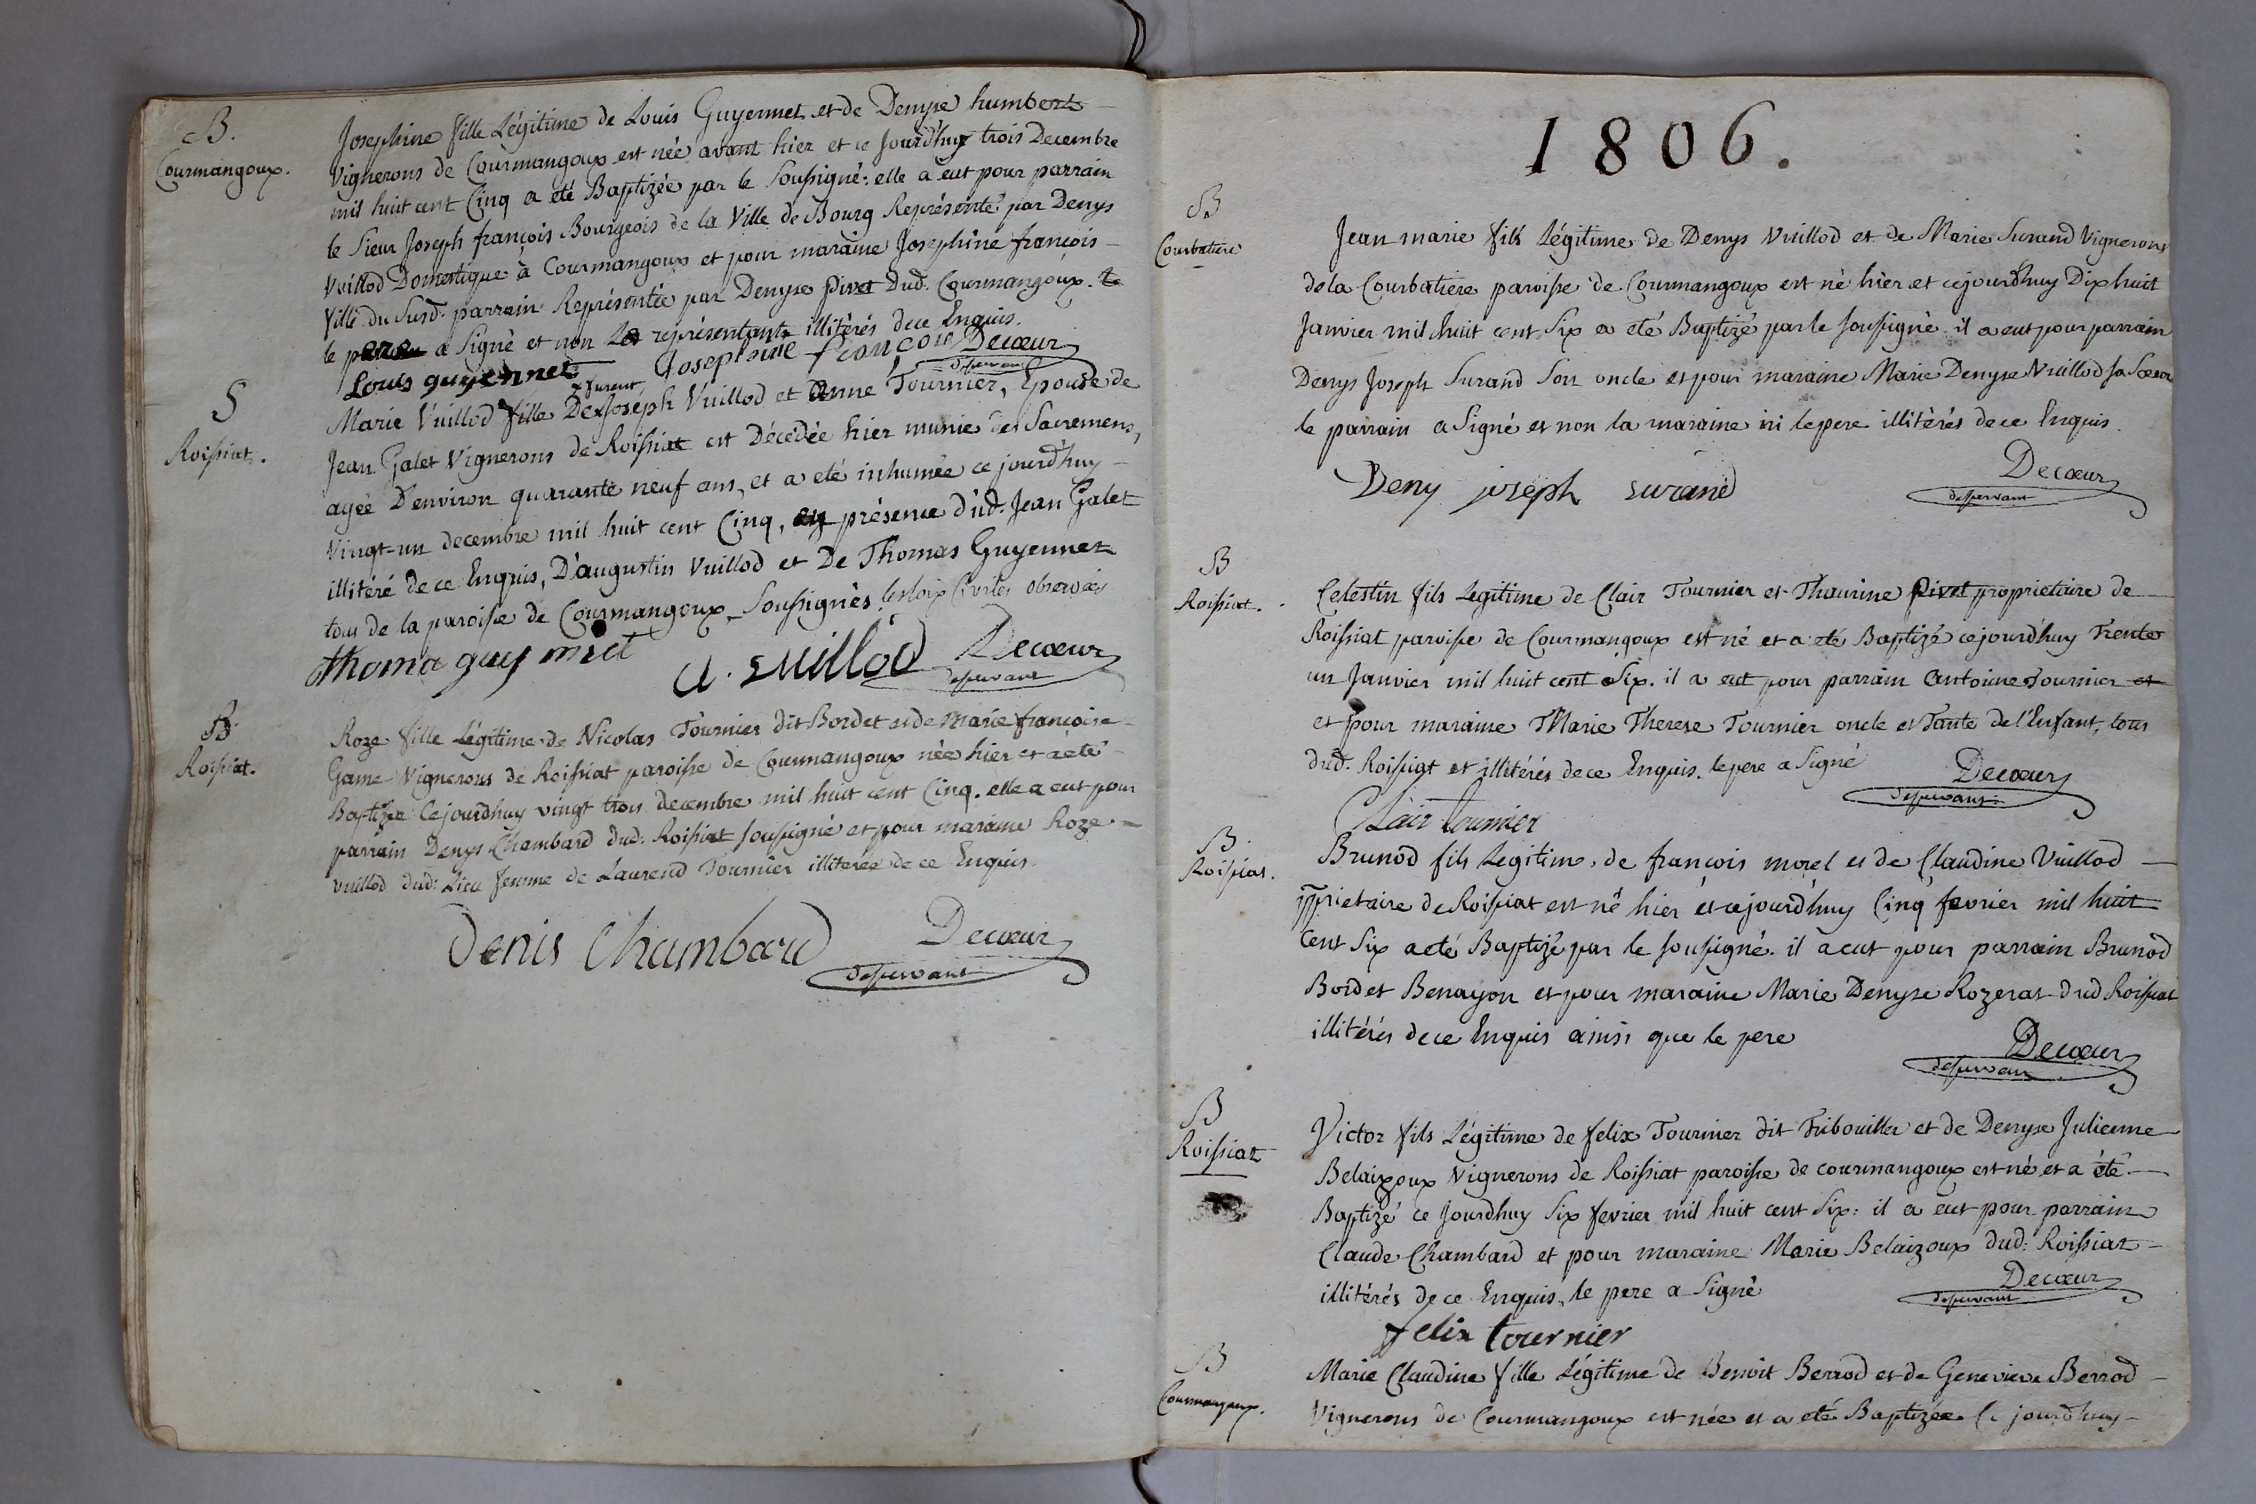 B.
Courmangoux.
Josephine fille Légitime de Louis Guyennet et de Denyse humbert
Vignerons de Courmangoux est née avant hier et ce Jourd'huy trois Decembre
mil huit cent Cinq a eté Baptizée par le Soussigné: elle a eut pour parrain
le Sieur Joseph françois Bourgeois de la Ville de Bourg Représenté par Denys
Vuillod Domestique à Courmangoux et pour maraine Josephine françois
fille du Susd. parrain Représentée par Denyse Pivet Dud. Courmangoux. le
le pere a Signé et non Les représentants illitérés de ce Enquis.
Louis guyennet Josephine françois Decœur
desservant
S
Roissiat.
Marie Vuillod fille De furent Joséph Vuillod et Anne Tournier, Epouse de
Jean Galet Vignerons de Roissiat est Décédée hier munie des Sacremens,
agée D'environ quarante neuf ans, et a eté inhumée ce jourd'huy
vingt-un decembre mil huit cent Cinq, en présence dud. Jean Galet
illitéré de ce Enquis, D'augustin Vuillod et De Thomas Guyennet
tous de la paroisse de Courmangoux Soussignés. les loix Civiles observées
thoma guy met a. vuillod Decœur
desservant
B.
Roissiat.
Roze fille Légitime de Nicolas Tournier dit Bordet et de Marie françoise
Game Vignerons de Roissiat paroisse de Courmangoux née hier et a eté
Baptizée Cejourdhuy vingt trois decembre mil huit cent Cinq. elle a eut pour
parrain Denys Chambard dud. Roissiat soussigné et pour maraine Roze
vuillod dud. Lieu femme de Laurend Tournier illiterée de ce Enquis.
Denis Chambard Decœur
desservant
1806.
B
Courbatiere
Jean marie fils Légitime de Denys Vuillod et de Marie Surand Vignerons
de la Courbatiere paroisse de Courmangoux est né hier et cejourdhuy Dix huit
Janvier mil huit cent Six a eté Baptizé par le soussigné. il a eut pour parrain
Denys Joseph Surand Son oncle et pour maraine Marie Denyse Vuillod sa Sœur
le parrain a Signé et non la maraine ni le pere illitèrés de ce Enquis.
Deny joseph surand Decœur
desservant
B
Roissiat.
Celestin fils Legitime de Clair Tournier et Thaurine Pivet proprietaire de
Roissiat paroisse de Courmangoux est né et a eté Baptizé cejourd'huy Trente
un Janvier mil huit cent Six. il a eut pour parrain Antoine Tournier et
et pour maraine Marie Therese Tournier oncle et Tante de l'Enfant, tous
dud. Roissiat et illitérés de ce Enquis. le pere a Signé
Clair Tournier Decœur
desservant
B.
Roissiat.
Brunod fils Legitime de françois morel et de Claudine Vuillod
pprietaire de Roissiat est né hier et cejourd'huy Cinq fevrier mil huit
Cent Six a eté Baptizé par le soussigné. il a eut pour parrain Brunod
Bordet Benayon et pour maraine Marie Denyse Rozerat dud Roissiat
illitérés de ce Enquis ainsi que le pere
Decœur
desservant
B
Roissiat
Victor fils Légitime de felix Tournier dit Tribouiller et de Denyse Julienne
Belaizoux Vignerons de Roissiat paroisse de courmangoux est né et a été
Baptizé ce Jourdhuy Six fevrier mil huit cent Six: il a eut pour parrain
Claude Chambard et pour maraine Marie Belaizoux dud: Roissiat
illitérés de ce Enquis, le pere a Signé
felix tournier Decœur
desservant
B
Courmangoux.
Marie Claudine fille Légitime de Benoit Berrod et de Genevieve Berrod
Vignerons de Courmangoux est née et a eté Baptizée Ce jourdhuy